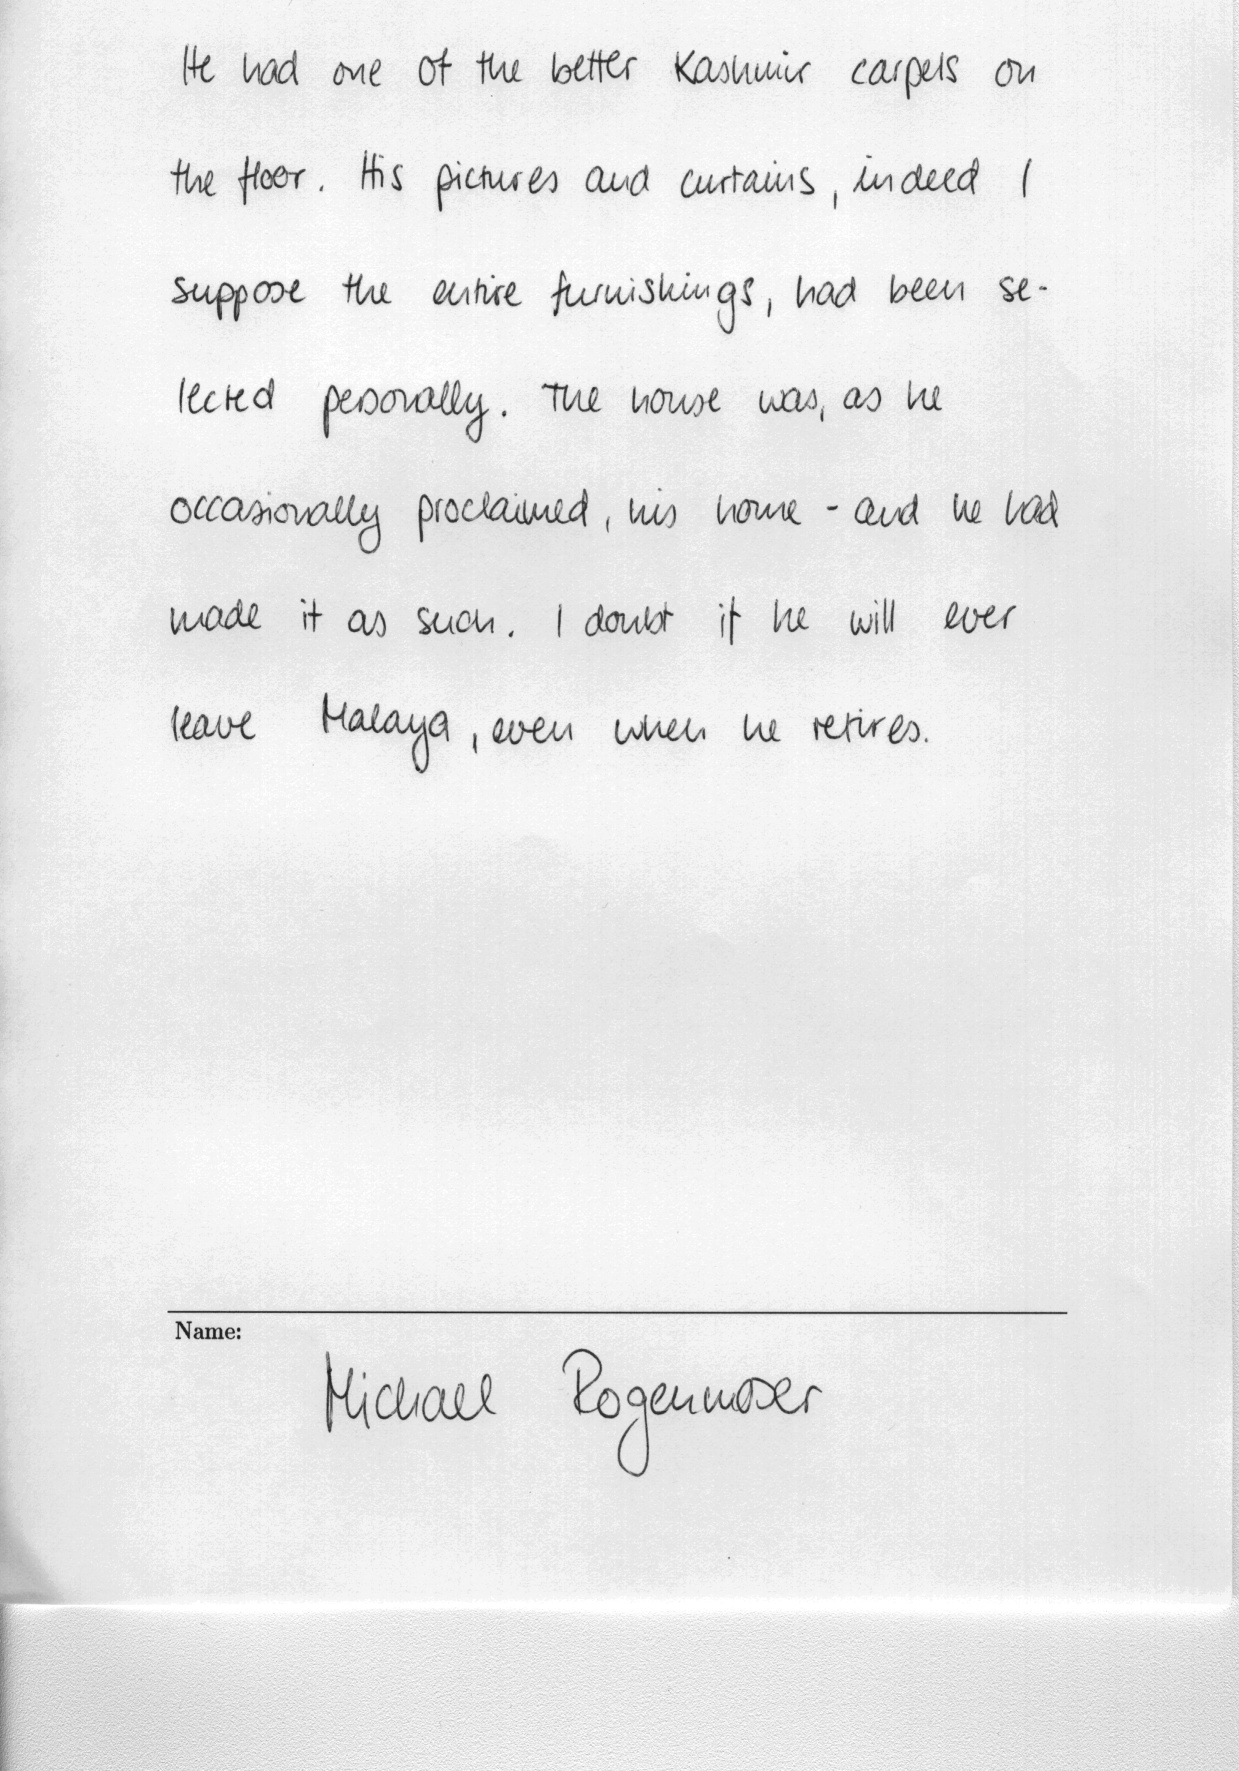 He had one of the better Kashmir carpets on
the floor. His pictures and curtains, indeed I
suppose the entire furnishings, had been se-
lected personally. The house was, as he
occasionally proclaimed, his home - and he had
made it as such. I doubt if he will ever
leave Malaya, even when he retires.
Name:
Michael Rogenmoser